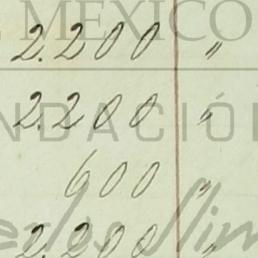 MEXICO
2.200 "
2.200 "
NDACIÓ
600 "
erlos Slim
2.200 "